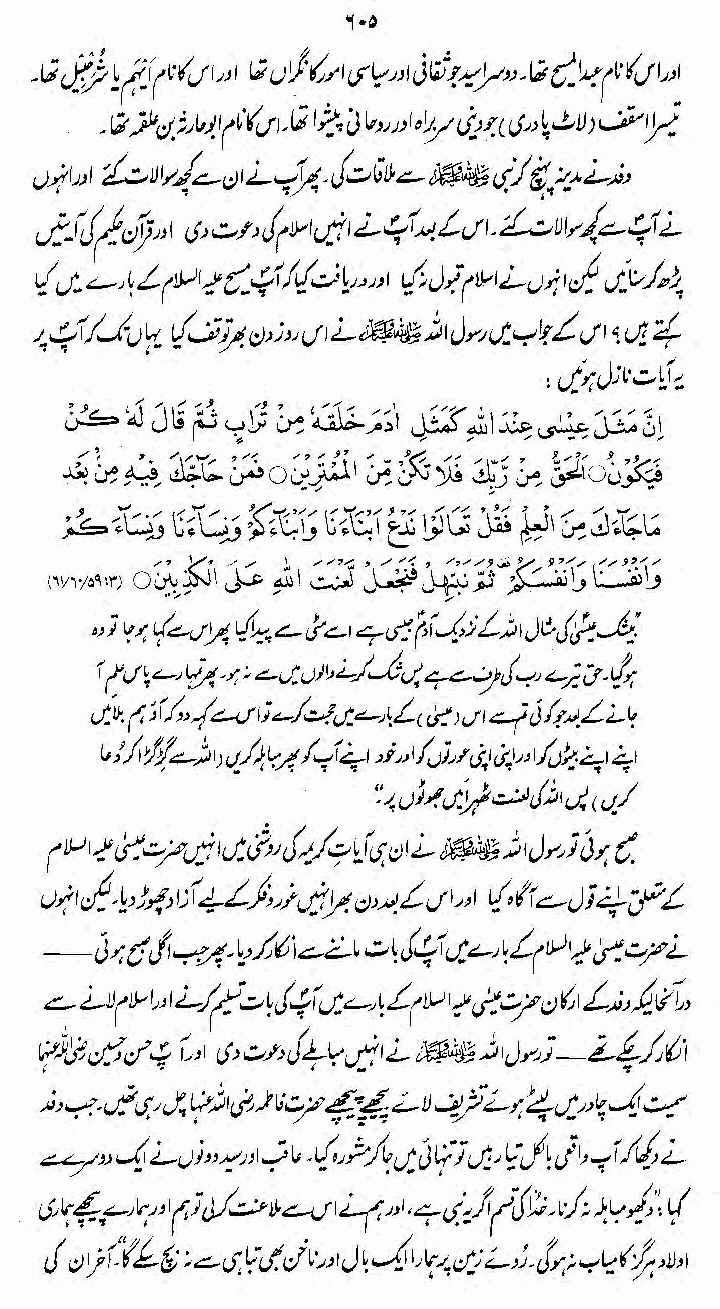 ۶۰۵
اور اس کا نام عبدالمسیح تھا۔ دوسرا سید جو ثقافتی اور سیاسی امور کا نگراں تھا اور اس کا نام اَیْہم یا شُرَحْبِیْل تھا۔
تیسرا اسقف (لاٹ پادری) جو دینی سربراہ اور روحانی پیشوا تھا۔ اس کا نام ابوحارثہ بن علقمہ تھا۔
وفد نے مدینہ پہنچ کر نبی ﷺ سے ملاقات کی۔ پھر آپ نے ان سے کچھ سوالات کئے اور انہوں
نے آپ سے کچھ سوالات کئے۔ اس کے بعد آپ نے انہیں اسلام کی دعوت دی اور قرآن حکیم کی آیتیں
پڑھ کر سنائیں لیکن انہوں نے اسلام قبول نہ کیا اور دریافت کیا کہ آپ مسیح علیہ السلام کے بارے میں کیا
کہتے ہیں؟ اس کے جواب میں رسول اللہ ﷺ نے اس روز دن بھر توقف کیا یہاں تک کہ آپ پر
یہ آیات نازل ہوئیں :
اِنَّ مَثَلَ عِيْسٰى عِنْدَ اللهِ كَمَثَلِ اٰدَمَ خَلَقَهٗ مِنْ تُرَابٍ ثُمَّ قَالَ لَهٗ كُنْ
فَيَكُوْنُ○ اَلْحَقُّ مِنْ رَّبِّكَ فَلَا تَكُنْ مِّنَ الْمُمْتَرِيْنَ○ فَمَنْ حَآجَّكَ فِيْهِ مِنْۢ بَعْدِ
مَا جَآءَكَ مِنَ الْعِلْمِ فَقُلْ تَعَالَوْا نَدْعُ اَبْنَآءَنَا وَاَبْنَآءَكُمْ وَنِسَآءَنَا وَنِسَآءَكُمْ
وَاَنْفُسَنَا وَاَنْفُسَكُمْ ثُمَّ نَبْتَهِلْ فَنَجْعَلْ لَّعْنَتَ اللهِ عَلَى الْكٰذِبِيْنَ○ (۳: ۵۹/۶۰/۶۱)
”بیشک عیسیٰؑ کی مثال اللہ کے نزدیک آدمؑ جیسی ہے اسے مٹی سے پیدا کیا پھر اس سے کہا ہوجا تو وہ
ہوگیا۔ حق تیرے رب کی طرف سے ہے پس شک کرنے والوں میں سے نہ ہو۔ پھر تمہارے پاس علم آ
جانے کے بعد جو کوئی تم سے اس (عیسیٰ) کے بارے میں حجت کرے تو اس سے کہہ دو کہ آؤ ہم بلائیں
اپنے اپنے بیٹوں کو اور اپنی اپنی عورتوں کو اور خود اپنے آپ کو پھر مباہلہ کریں (اللہ سے گڑگڑا کر دُعا
کریں) پس اللہ کی لعنت ٹھہرائیں جھوٹوں پر۔“
صبح ہوئی تو رسول اللہ ﷺ نے ان ہی آیاتِ کریمہ کی روشنی میں انہیں حضرت عیسیٰ علیہ السلام
کے متعلق اپنے قول سے آگاہ کیا اور اس کے بعد دن بھر انہیں غور و فکر کے لیے آزاد چھوڑ دیا۔ لیکن انہوں
نے حضرت عیسیٰ علیہ السلام کے بارے میں آپ کی بات ماننے سے انکار کر دیا۔ پھر جب اگلی صبح ہوئی ——
درآنحالیکہ وفد کے ارکان حضرت عیسیٰ علیہ السلام کے بارے میں آپ کی بات تسلیم کرنے اور اسلام لانے سے
انکار کر چکے تھے —— تو رسول اللہ ﷺ نے انہیں مباہلے کی دعوت دی اور آپ حسن و حسین رضی اللہ عنہما
سمیت ایک چادر میں لپٹے ہوئے تشریف لائے پیچھے پیچھے حضرت فاطمہ رضی اللہ عنہا چل رہی تھیں۔ جب وفد
نے دیکھا کہ آپ واقعی بالکل تیار ہیں تو تنہائی میں جاکر مشورہ کیا۔ عاقب اور سید دونوں نے ایک دوسرے سے
کہا: ”دیکھو مباہلہ نہ کرنا۔ خدا کی قسم اگر یہ نبی ہے، اور ہم نے اس سے ملاعنت کرلی تو ہم اور ہمارے پیچھے ہماری
اولاد ہرگز کامیاب نہ ہوگی۔ رُوئے زمین پر ہمارا ایک بال اور ناخن بھی تباہی سے نہ بچ سکے گا“۔ آخر ان کی